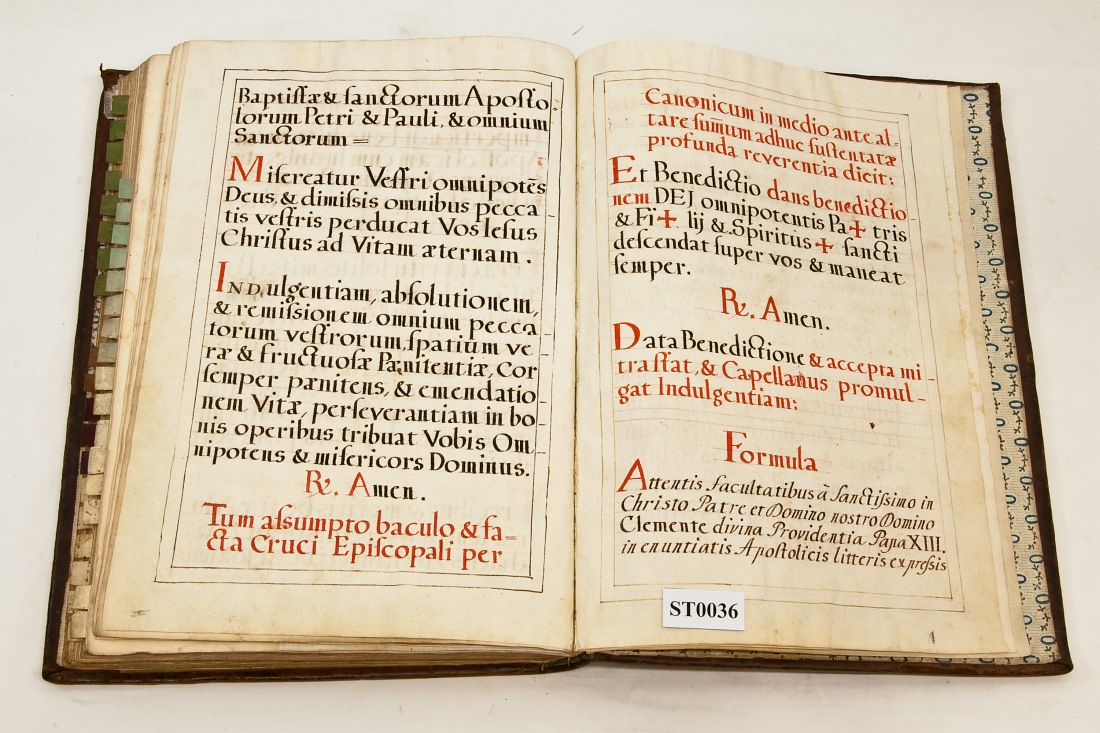 Baptistæ & sanctorum Aposto
lorum Petri & Pauli, & omnium
Sanctorum =
Misereatur Vestri omnipotẽs
Deus, & dimissis omnibus pecca-
tis vestris perducat Vos Iesus
Christus ad Vitam æternam.
INDulgentiam, absolutionem,
& remissionem omnium pecca-
torum vestrorum, spatium ve-
ræ & fructuosæ Pænitentiæ, Cor
semper pænitens, & emendatio-
nem Vitæ, perseverantiam in bo-
nis operibus tribuat Vobis Om-
nipotens & misericors Dominus.
℟. Amen.
Tum assumpto baculo & fa=
cta Cruci Episcopali per
Canonicum in medio ante al=
tare sum̃um adhuc sustentatæ
profunda reverentia dicit:
Et Benedictio dans benedictio-
nem DEJ omnipotentis Pa✝tris
& Fi✝lij & Spiritus✝sancti
descendat super vos & maneat
semper.
℟. Amen.
Data Benedictione & accepta mi-
tra stat, & Capellanus promul-
gat Indulgentiam:
Formula
Attentis facultatibus â Sanctissimo in
Christo Patre et Domino nostro Domino
Clemente divina Providentia Papa XIII.
in enuntiatis Apostolicis litteris expressis
ST0036